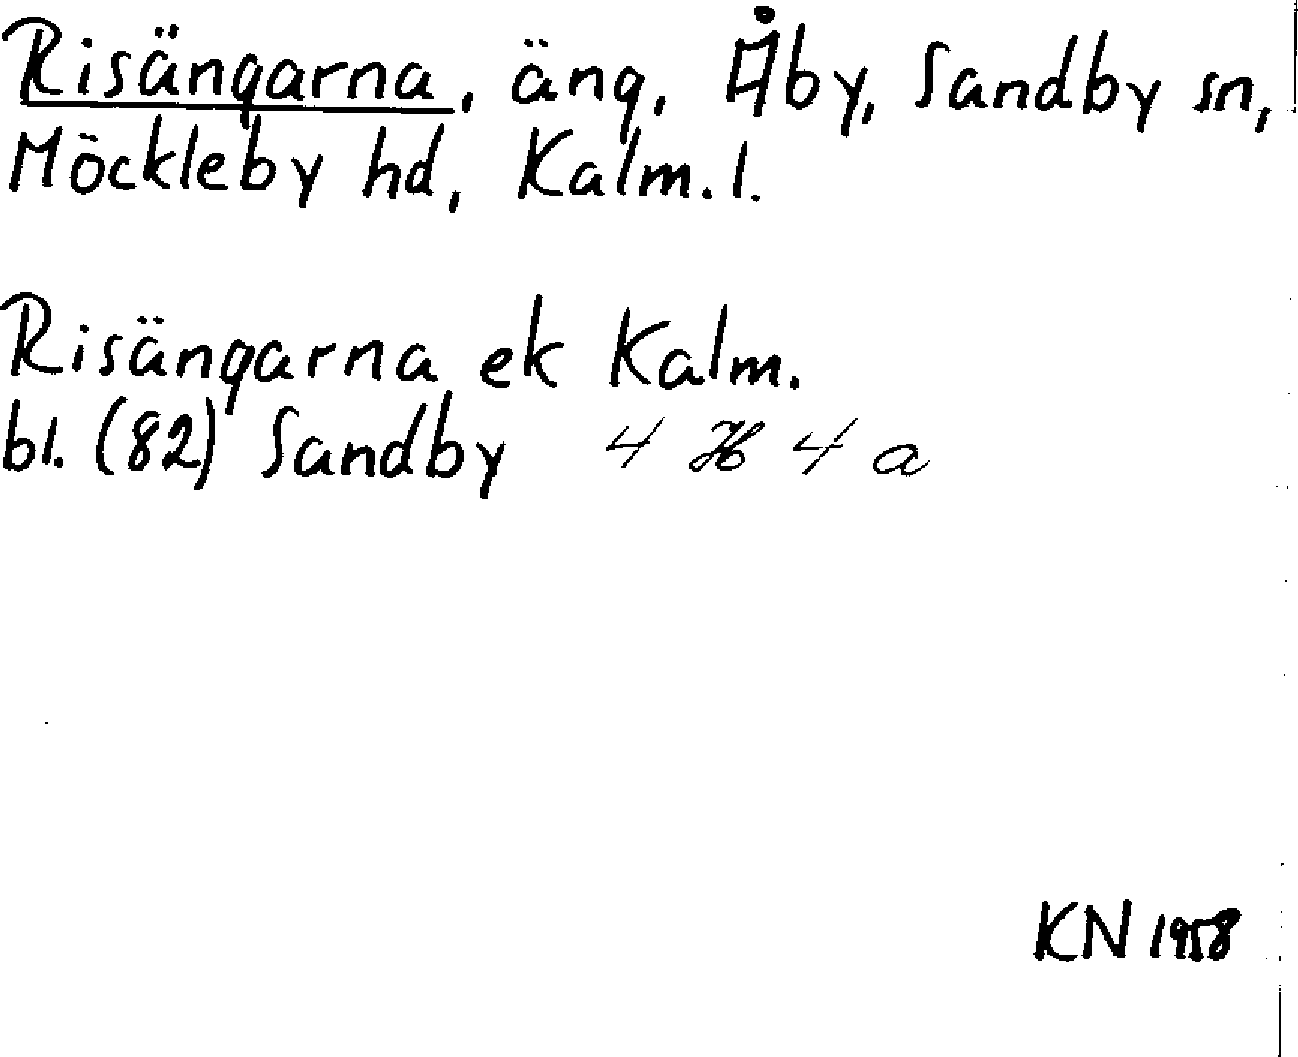 Risängarna, äng, Åby, Sandby sn,
Möckleby hd, Kalm. l.
Risängarna ek Kalm.
bl. (82) Sandby 4 H 4 a
KN 1958